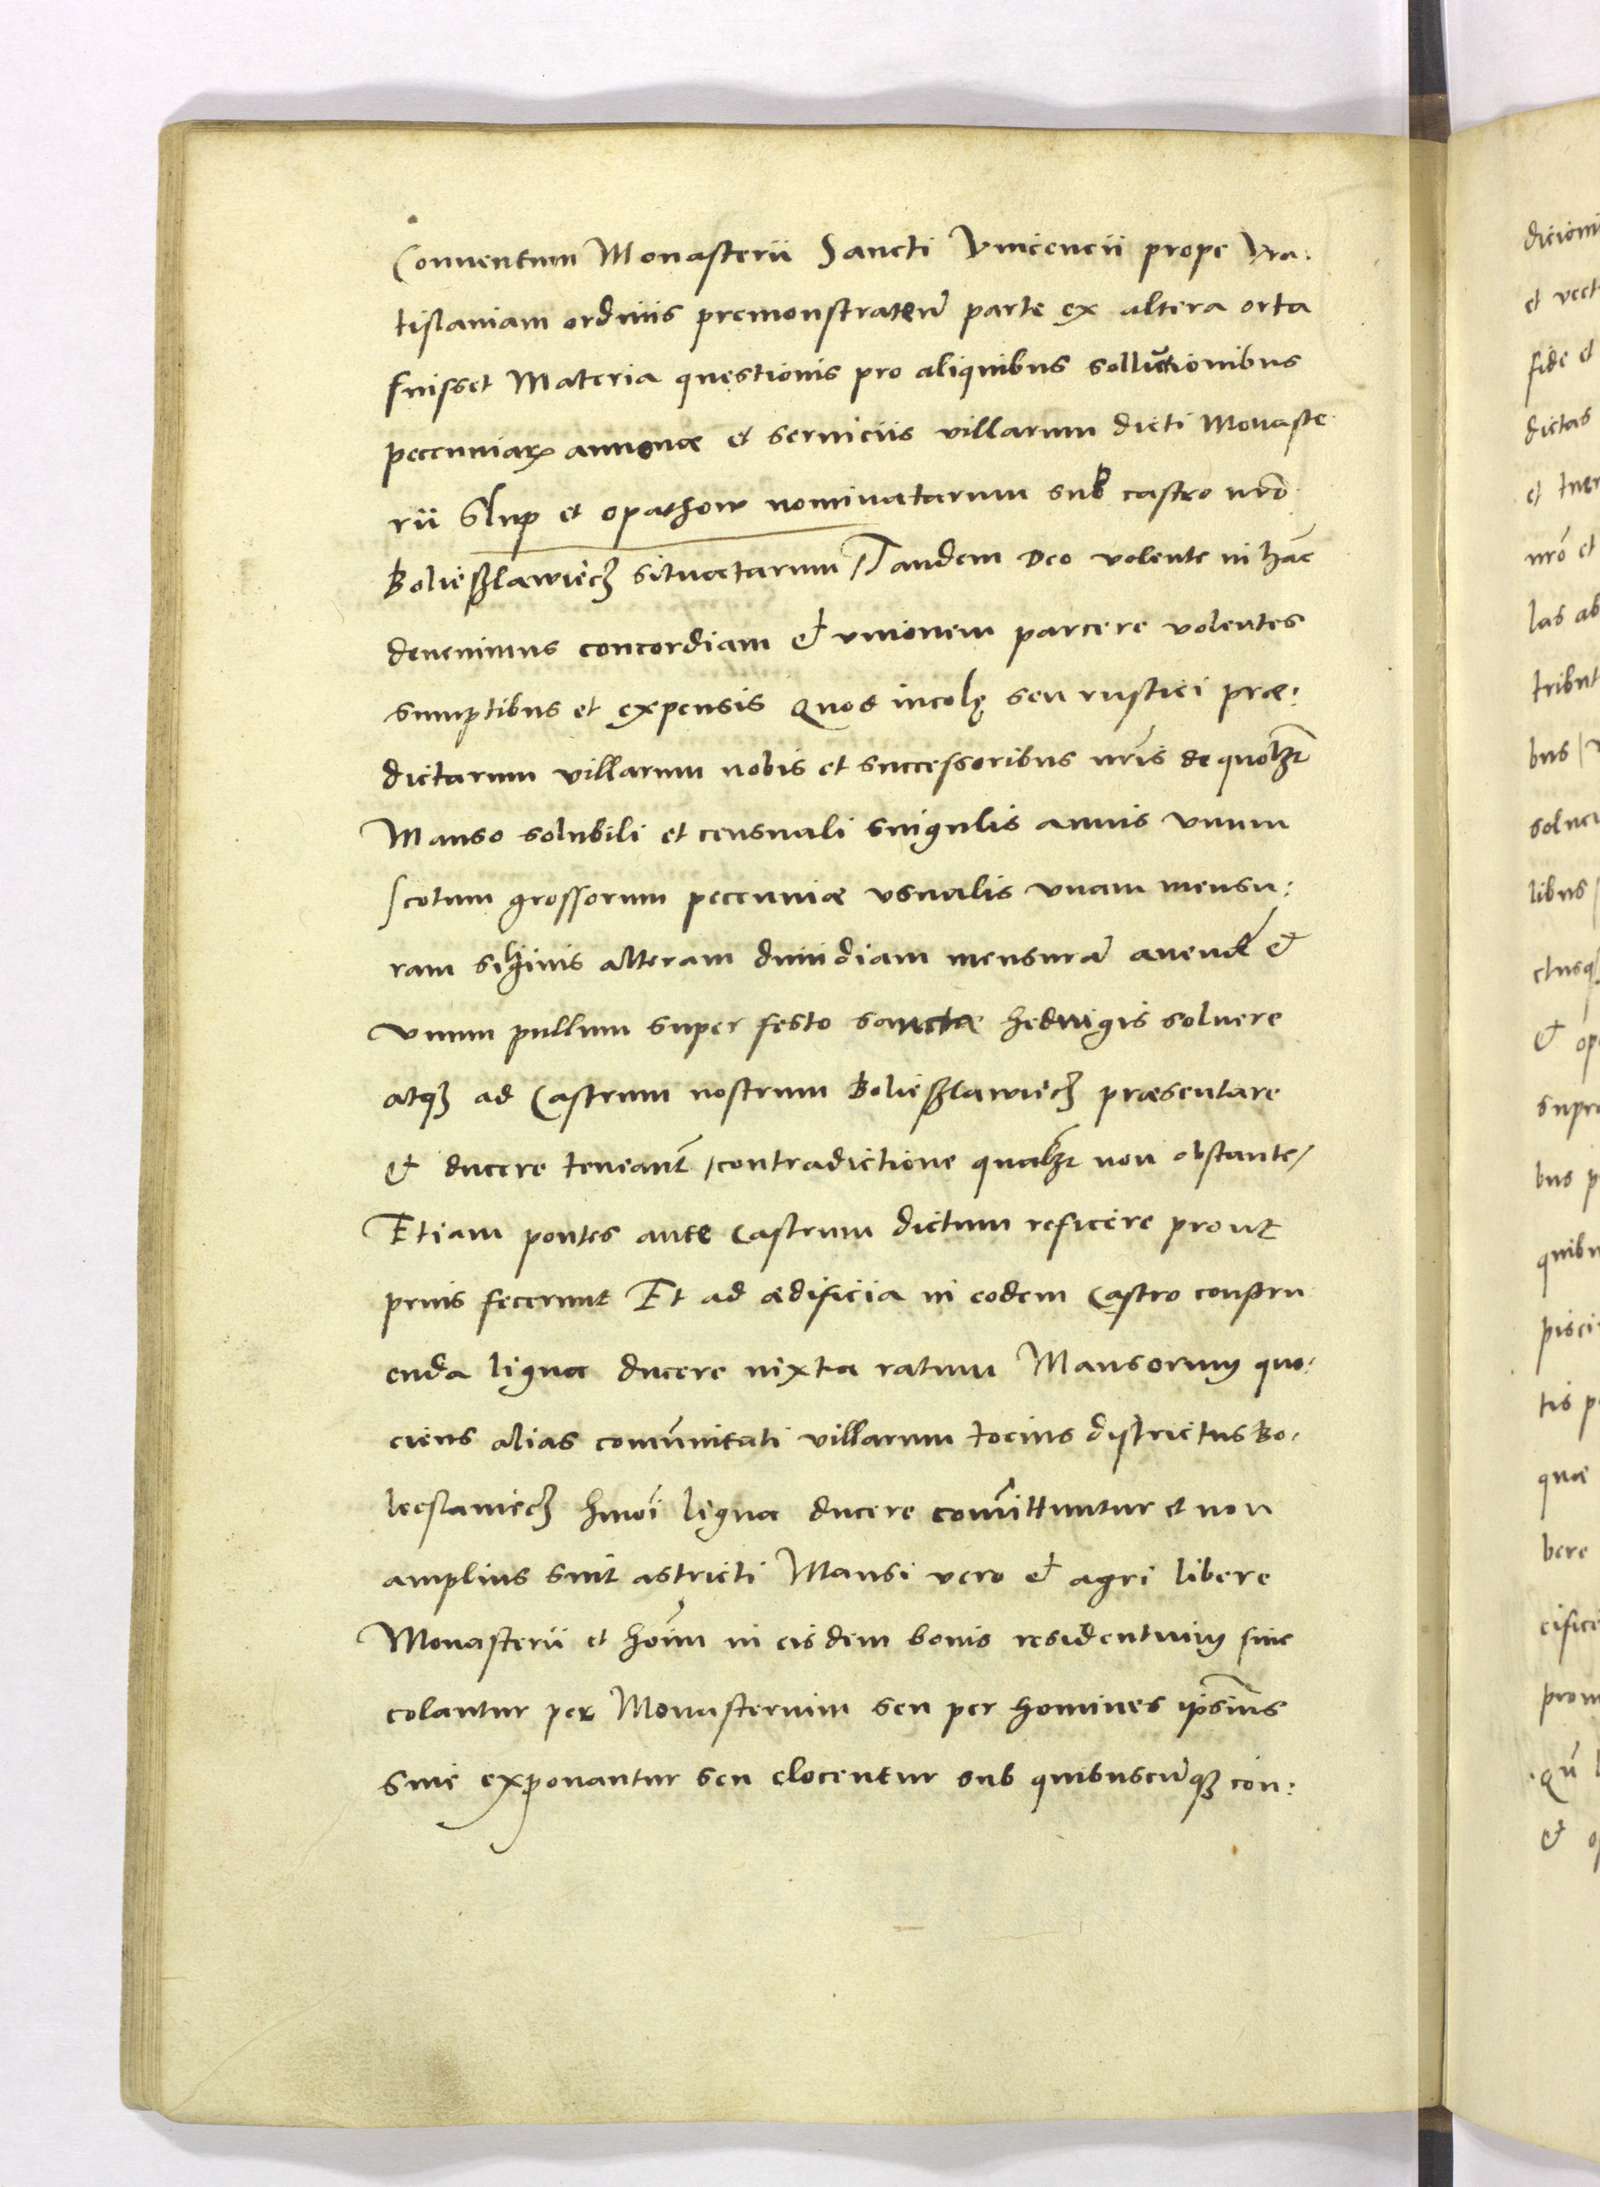 Conuentum Monasterii Sancti Vincencii prope Vra:
tislauiam ordinis premonstrateñ parte ex altera orta
fuisset Materia quęstionis pro aliquibus sollucionibus
pecuniaꝝ annonæ et seruiciis villarum dicti Monaste
rii Slup et opathow nominatarum sub castro nrõ
Bolieszlawiecz situatarum / Tandem Deo volente in hãc
deuenimus concordiam & vnionem parcere volentes
sumptibus et expensis Quos incolę seu rustici præ:
dictarum villarum nobis et successoribus nrĩs de quolꝫt
Manso solubili et censuali singulis annis vnum
scotum grossorum pecuniæ vsualis vnam mensu:
ram siliginis alteram dimidiam mensurã auenæ &
vnum pullum super festo sanctæ hedwigis soluere
atqꝫ ad Castrum nostrum Bolieszlawiecz præsentare
& ducere teneant̃ / contradictione qualꝫt non obstante /
Etiam pontes ante Castrum dictum reficere prout
prius fecerunt Et ad ædificia in eodem Castro constru
enda ligna ducere iuxta ratum Mansorum quo:
ciens alias com̃unitati villarum tocius districtus Bo:
leslauiecz hmõi ligna ducere com̃ittuntur et non
amplius sint astricti Mansi vero & agri libere
Monasterii et hoĩm in eisdem bonis residentium siue
colantur per Monasterium seu per homines ipsĩus
siue exponantur seu elocentur sub quibuscũqꝫ con:
dicioni
et vect
fide et
dictas
nrõ et
las ab
tribut
bus /
libus
&
supr
bus p
quibu
tis p
quæ
bere
& o